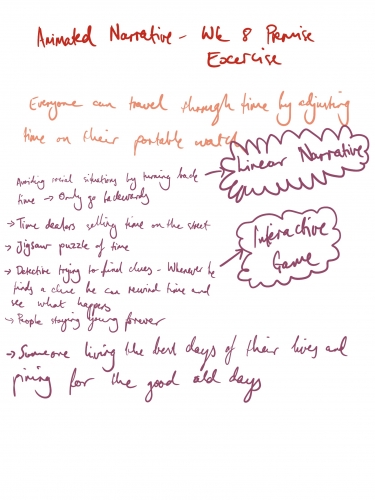 Animated Narrative - Wk 8 Premise
Excercise
Everyone can travel through time by adjusting
time on their portable watch
Avoiding social situations by turning back
time → Only go backwards
→ Linear Narrative
→ Time dealers selling time on the street
→ Jigsaw puzzle of time
→ Interactive
Game
→ Detective trying to find clues - Whenever he
finds a clue he can rewind time and
see what happens
→ People staying young forever
→ Someone living the best days of their lives and
pining for the good old days